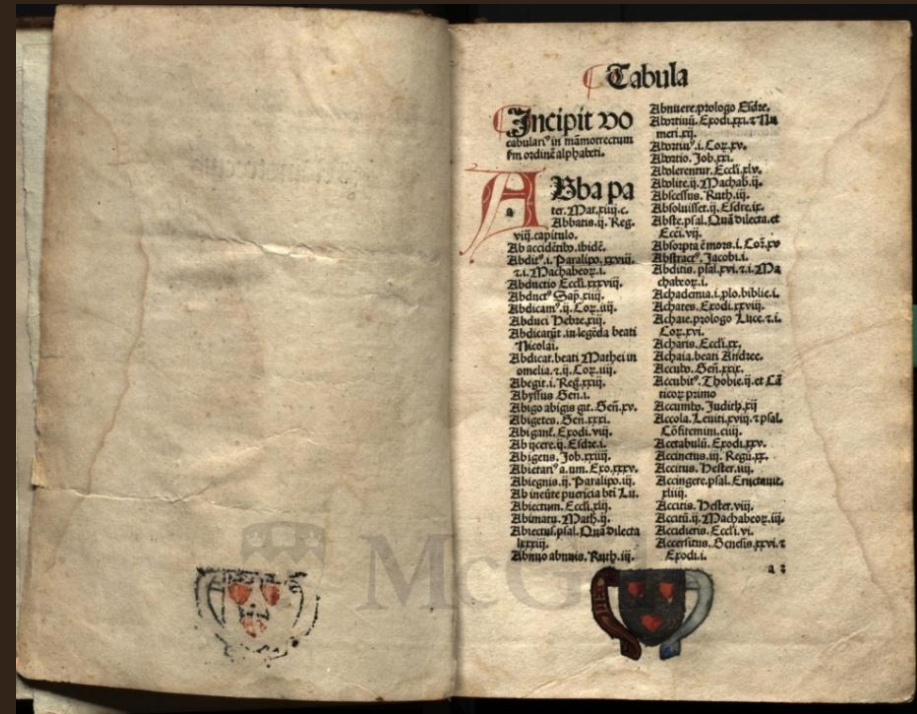 ¶Tabula
¶Incipit vo
cabulariꝰ in māmotrectum
ẜm ordinē alphabeti.
ABba pa
a ter. Mar.xiiij.c.
Abbatis.ij. Reg.
viij.capitulo.
Ab accidētib⁹.ibidē.
Abditꝰ.i. Paralipo.xxviii.
⁊.i. Machabeoꝝ.i.
Abductio Eccłi.xxxviij.
Abductꝰ Sap̄.xiiij.
Abdicamꝰ.ij. Coꝝ.iiij.
Abduci Hebre.xiij.
Abdicarūt.in legēda beati
Nicolai.
Abdicat.beati Mathei in
omelia.⁊.ij. Coꝝ.iiij.
Abegit.i. Reg̃.xxiij.
Abyssus Gen.i.
Abigo abigis git. Geñ.xv.
Abigetes. Geñ.xxxi.
Abigant̃. Exodi.viij.
Abijcere.ij. Esdre.i.
Abigens. Job.xxiiij.
Abietariꝰ a.um. Exo.xxxv.
Abiegnis.ij. Paralipo.iij.
Ab ineūte puericia bti Lu.
Abiectum. Eccłi.xlij.
Abimatu. Math.ij.
Abiectus.psal. Quā dilecta
lxxxiij.
Abnuo abnuis. Ruth.iij.
Abnuere.prologo Esdre.
Abortiuū. Exodi.xxi.⁊ Nu
meri.xij.
Abortiuꝰ.i. Coꝝ.xv.
Abortio. Job.xxi.
Abolerentur. Eccłi.xlv.
Abolite.ij. Machab.ij.
Abscessus. Ruth.iij.
Absoluisset.ij. Esdre.ix.
Abste.psal. Quā dilecta.et
Eccłi.vij.
Absorpta ē mors.i. Coꝝ.xv
Abstractꝰ. Jacobi.i.
Abditis. psal.xvi.⁊.i. Ma
chabeoꝝ.i.
Achademia.i.plo.biblie.i.
Achates. Exodi.xxviij.
Achaie.prologo Luce.⁊.i.
Coꝝ.xvi.
Acharis. Eccłi.xx.
Achaia.beati Andree.
Accubo. Geñ.xxix.
Accubitꝰ. Thobie.ij.et Cā
ticoꝝ primo
Accumbo. Judith.xij
Accola. Leuiti.xviij.⁊ psal.
Cōfitemini.ciiij.
Acetabulū. Exodi.xxv.
Accinctus.iij. Regū.xx.
Accitus. Hester.iiij.
Accingere.psal. Eructauit.
xliiij.
Accitis. Hester.viij.
Accitū.ij. Machabeoꝝ.iij.
Accidieris. Eccłi.vi.
Accersitus. Genesis.xxvi.⁊
Exodi.i.
a 2
McG